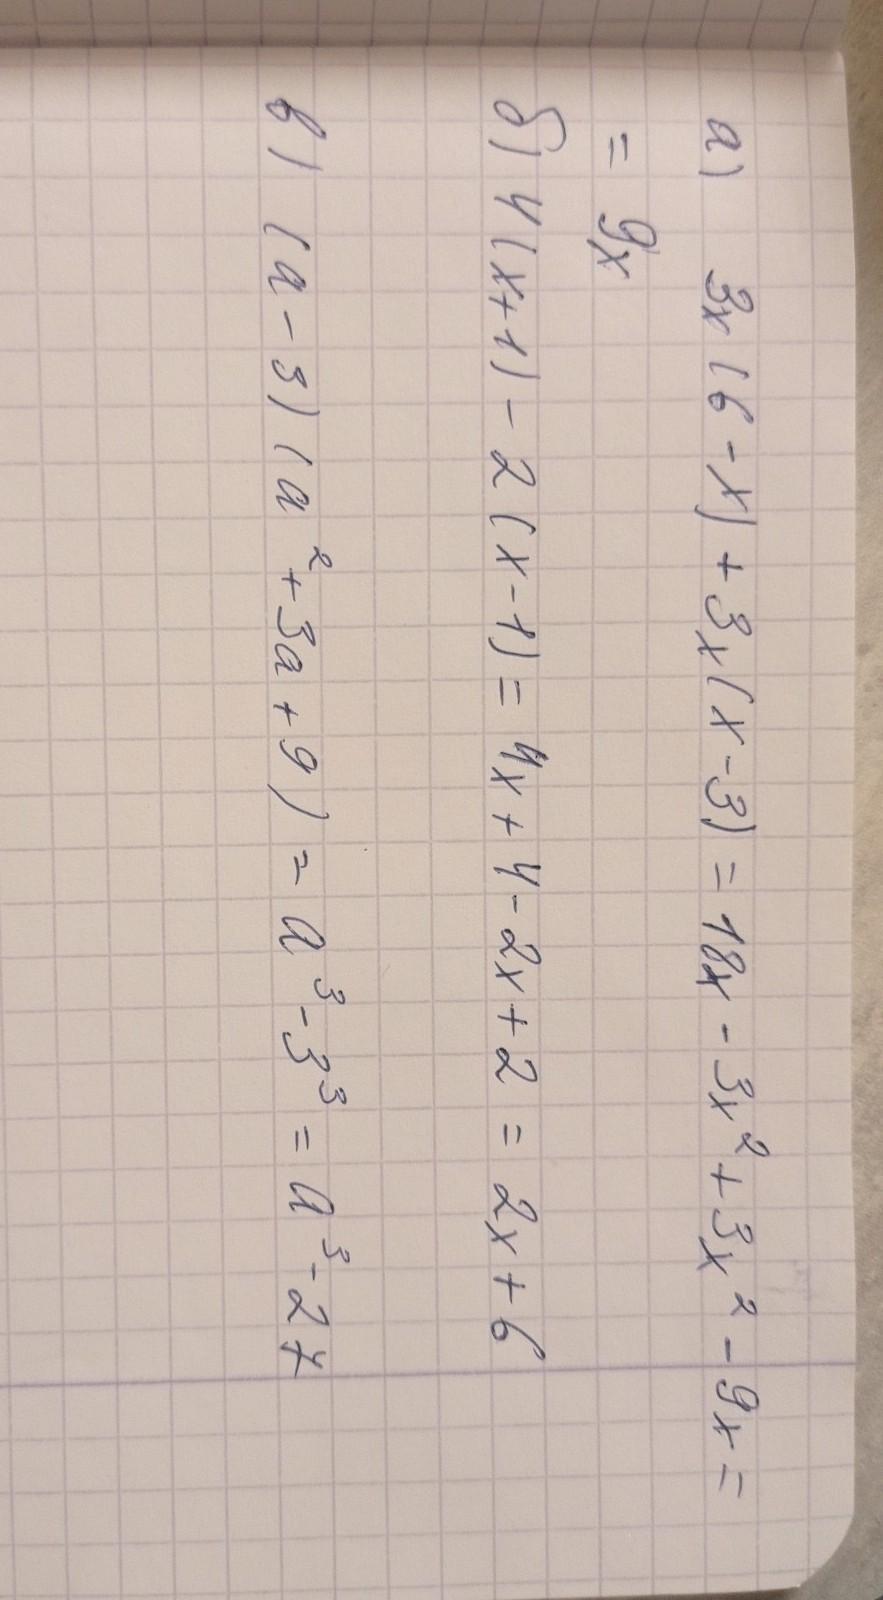 а) 3x(6-x)+3x(x-3)=18x-3x²+3x²-9x=
=9x
б) 4(x+1)-2(x-1)=4x+4-2x+2=2x+6
в) (a-3)(a²+3a+9)=a³-3³=a³-27